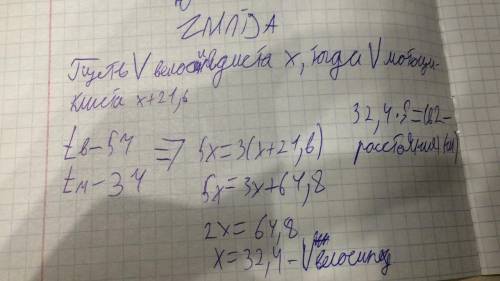 Пусть V велосипедиста x, тогда V мотоци-
клиста x+21,6
tв-5ч ⇒ 5x=3(x+21,6)
tм-3ч
5x=3x+64,8
2x=64,8
x=32,4-V велосипед
32,4·5=162-
расстояния (км)